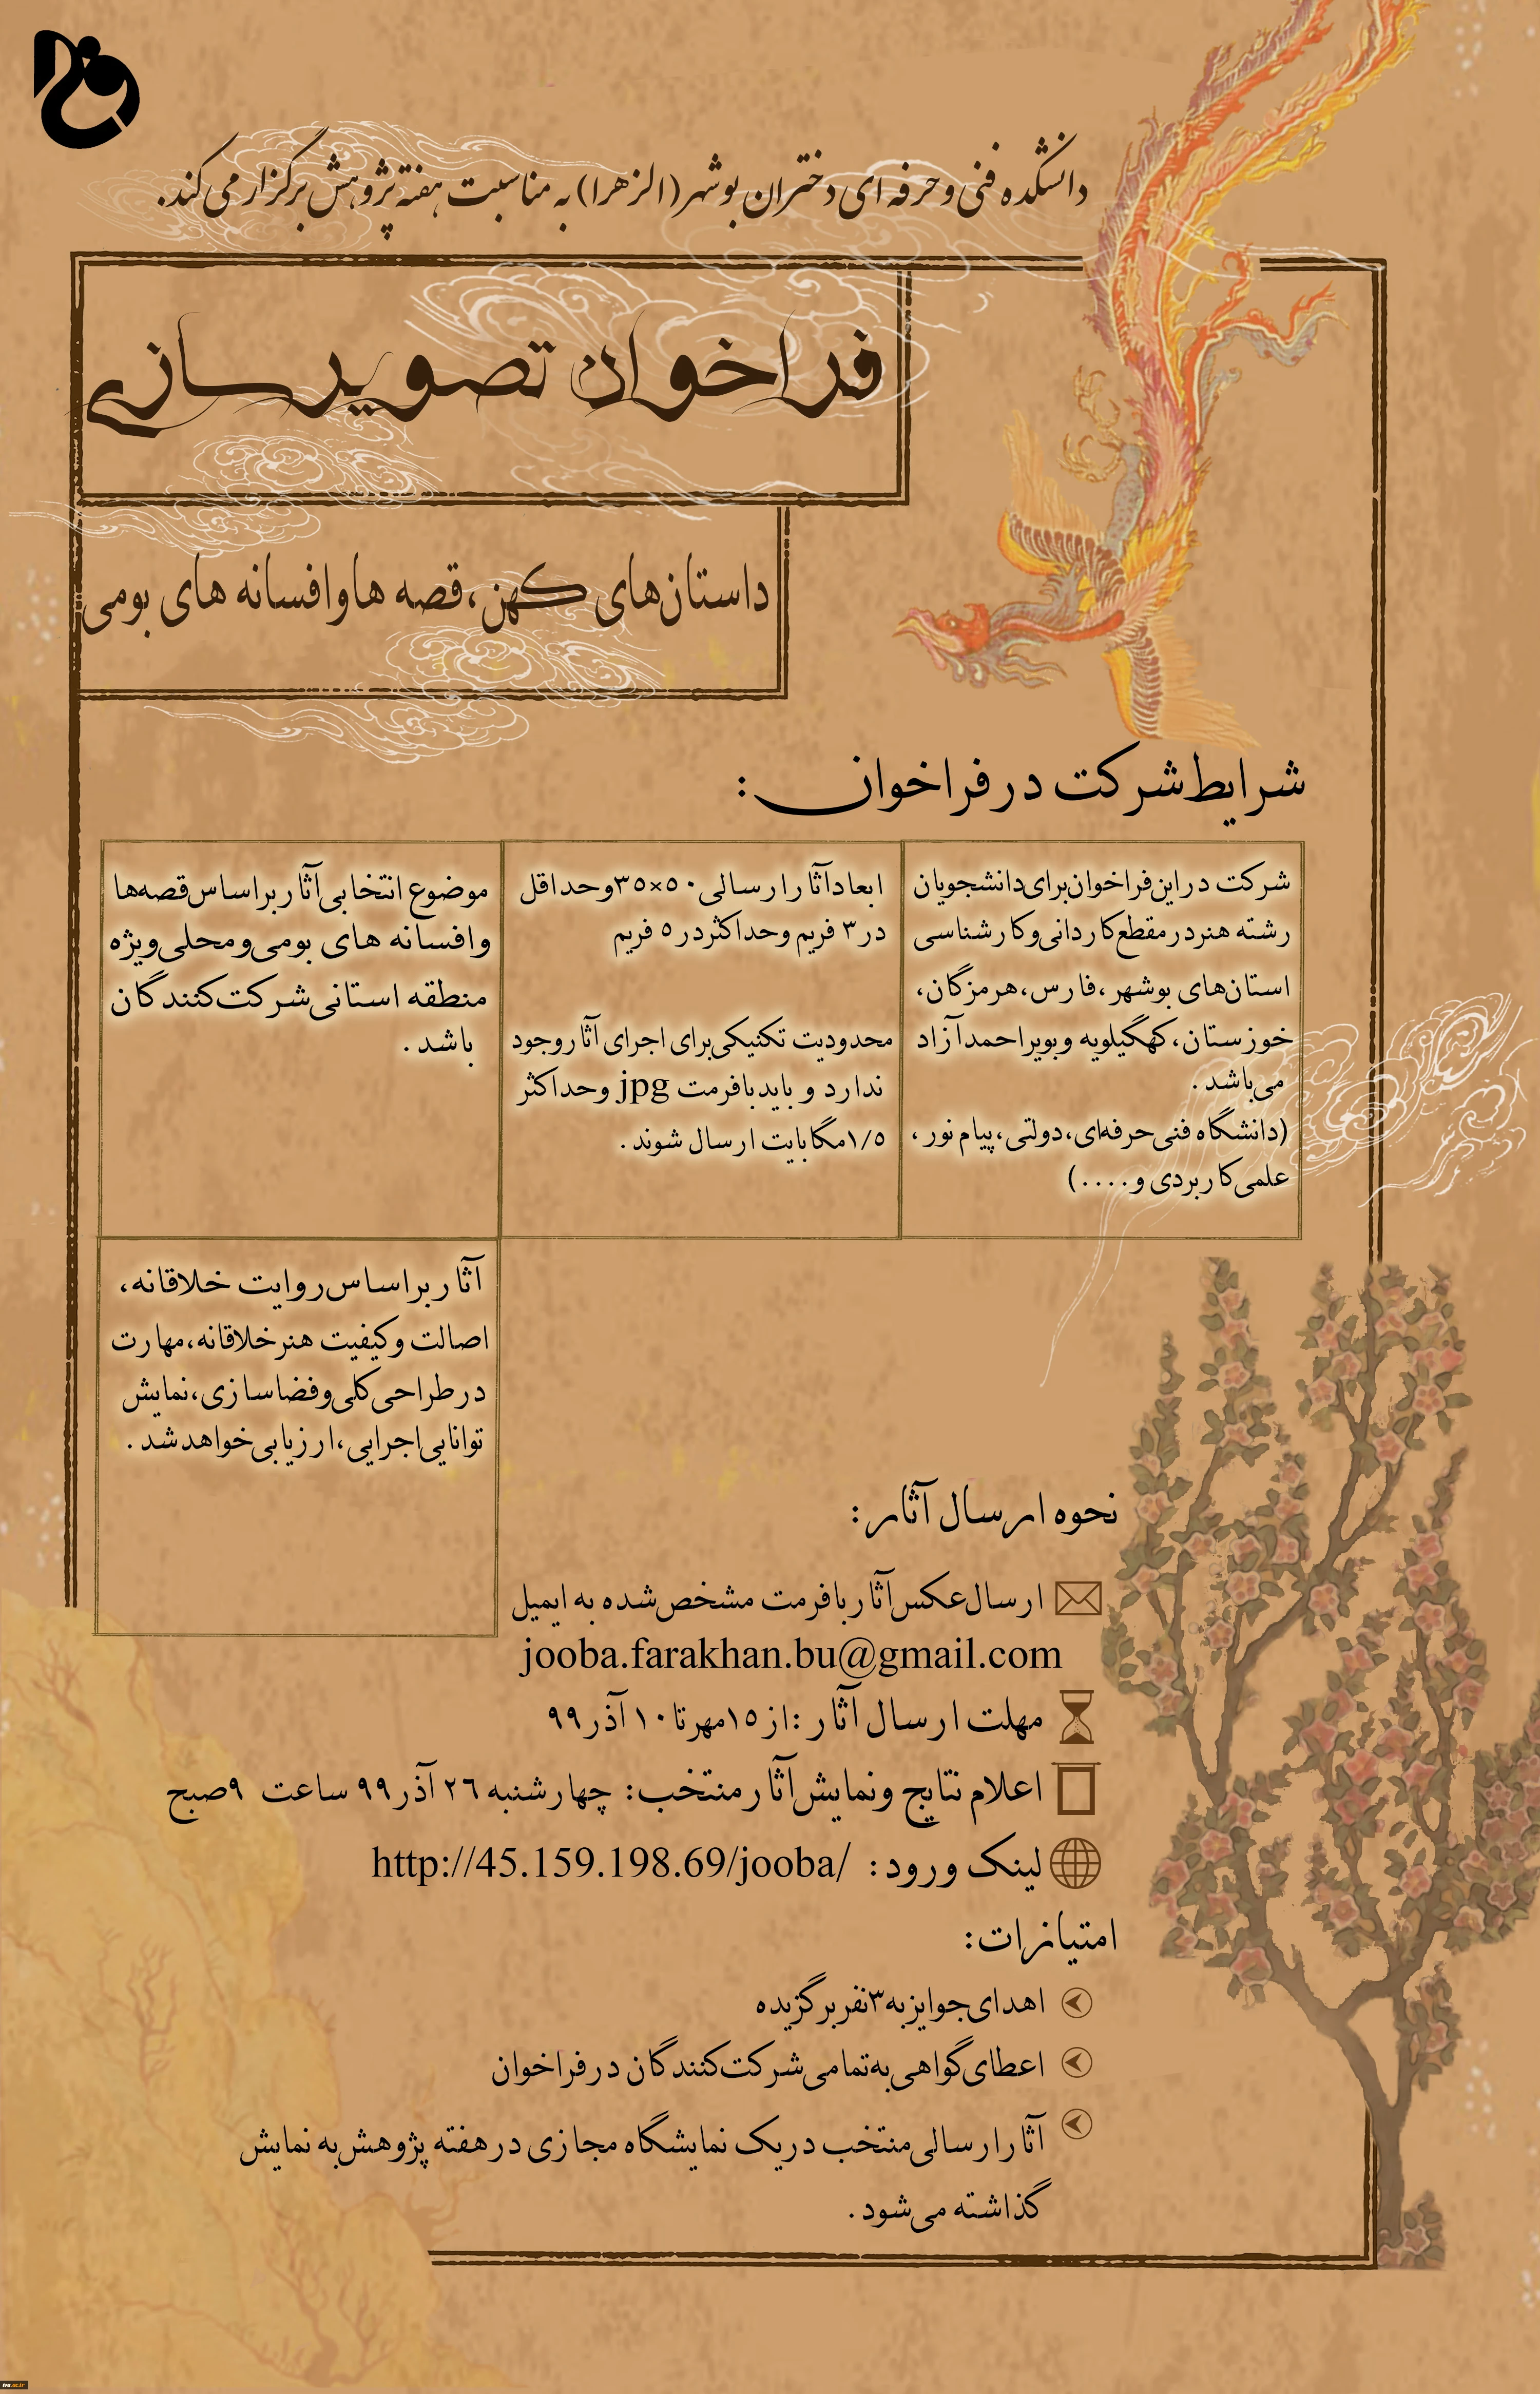 دانشکده فنی و حرفه ای دختران بوشهر (الزهرا) به مناسبت هفته پژوهش برگزار می کند.
فراخوان تصویرسازی
داستان‌های کهن، قصه ها و افسانه های بومی
شرایط شرکت در فراخوان :
شرکت در این فراخوان برای دانشجویان
رشته هنر در مقطع کاردانی و کارشناسی
استان‌های بوشهر، فارس، هرمزگان،
خوزستان، کهگیلویه و بویراحمد آزاد
می‌باشد.
(دانشگاه فنی حرفه‌ای، دولتی، پیام نور،
علمی کاربردی و....)
ابعاد آثار ارسالی ۵۰×۳۵ و حداقل
در ۳ فریم و حداکثر در ۵ فریم
محدودیت تکنیکی برای اجرای آثار وجود
ندارد و باید با فرمت jpg و حداکثر
۱/۵ مگابایت ارسال شوند.
موضوع انتخابی آثار براساس قصه‌ها
و افسانه های بومی و محلی ویژه
منطقه استانی شرکت‌کنندگان
باشد.
آثار براساس روایت خلاقانه،
اصالت و کیفیت هنر خلاقانه، مهارت
در طراحی کلی و فضاسازی، نمایش
توانایی اجرایی، ارزیابی خواهد شد.
نحوه ارسال آثار:
ارسال عکس آثار با فرمت مشخص شده به ایمیل
jooba.farakhan.bu@gmail.com
مهلت ارسال آثار : از ۱۵ مهر تا ۱۰ آذر ۹۹
اعلام نتایج و نمایش آثار منتخب: چهارشنبه ۲۶ آذر ۹۹ ساعت ۹ صبح
لینک ورود: http://45.159.198.69/jooba/
امتیازات:
اهدای جوایز به ۳ نفر برگزیده
اعطای گواهی به تمامی شرکت‌کنندگان در فراخوان
آثار ارسالی منتخب در یک نمایشگاه مجازی در هفته پژوهش به نمایش
گذاشته می‌شود.
tvu.ac.ir